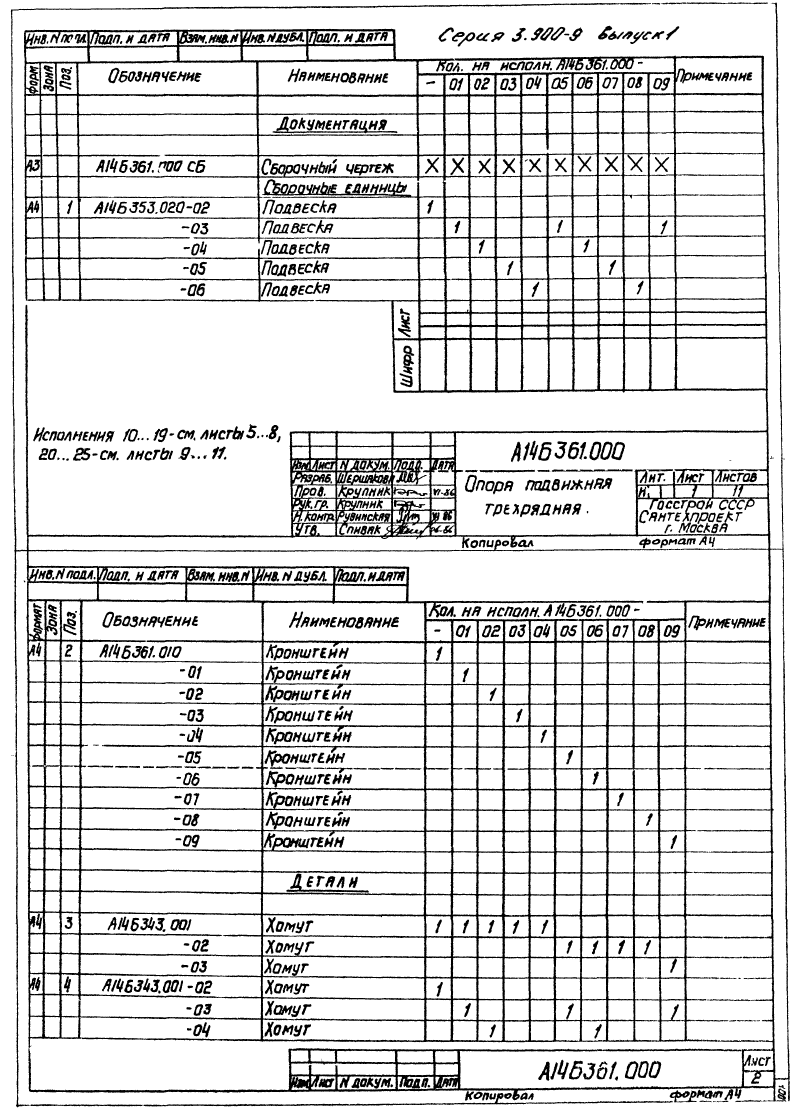 Серия 3.900-9 Выпуск 1
Инв. N подл. Подп. и дата Взам. инв. N Инв. N дубл. Подп. и дата
Форм Зона Поз. Обозначение Наименование Кол. на исполн. А14Б361.000 - Примечание
- 01 02 03 04 05 06 07 08 09
Документация
А3 А14Б361.000 СБ Сборочный чертеж X X X X X X X X X X
Сборочные единицы
А4 1 А14Б353.020-02 Подвеска 1
-03 Подвеска 1 1 1
-04 Подвеска 1 1
-05 Подвеска 1 1
-06 Подвеска 1 1
Лист
Шифр
Исполнения 10...19-см. листы 5...8,
20...25-см. листы 9...11.
А14Б361.000
Изм Лист N докум. Подп. Дата
Разраб. Шершакова
Пров. Крупник VI-86
Рук. гр. Крупник
Н. контр. Рувинская VI 86
Утв. Спивак 06.86
Опора подвижная
трехрядная.
Лит. Лист Листов
И. 1 11
Госстрой СССР
Сантехпроект
г. Москва
Копировал формат А4
Инв. N подл. Подп. и дата Взам. инв. N Инв. N дубл. Подп. и дата
Формат Зона Поз. Обозначение Наименование Кол. на исполн. А14Б361.000 - Примечание
- 01 02 03 04 05 06 07 08 09
А4 2 А14Б361.010 Кронштейн 1
-01 Кронштейн 1
-02 Кронштейн 1
-03 Кронштейн 1
-04 Кронштейн 1
-05 Кронштейн 1
-06 Кронштейн 1
-07 Кронштейн 1
-08 Кронштейн 1
-09 Кронштейн 1
Детали
А4 3 А14Б343.001 Хомут 1 1 1 1 1
-02 Хомут 1 1 1 1
-03 Хомут 1
А4 4 А14Б343.001-02 Хомут 1
-03 Хомут 1 1 1
-04 Хомут 1 1
Изм Лист N докум. Подп. Дата
А14Б361.000
Лист
2
Копировал формат А4